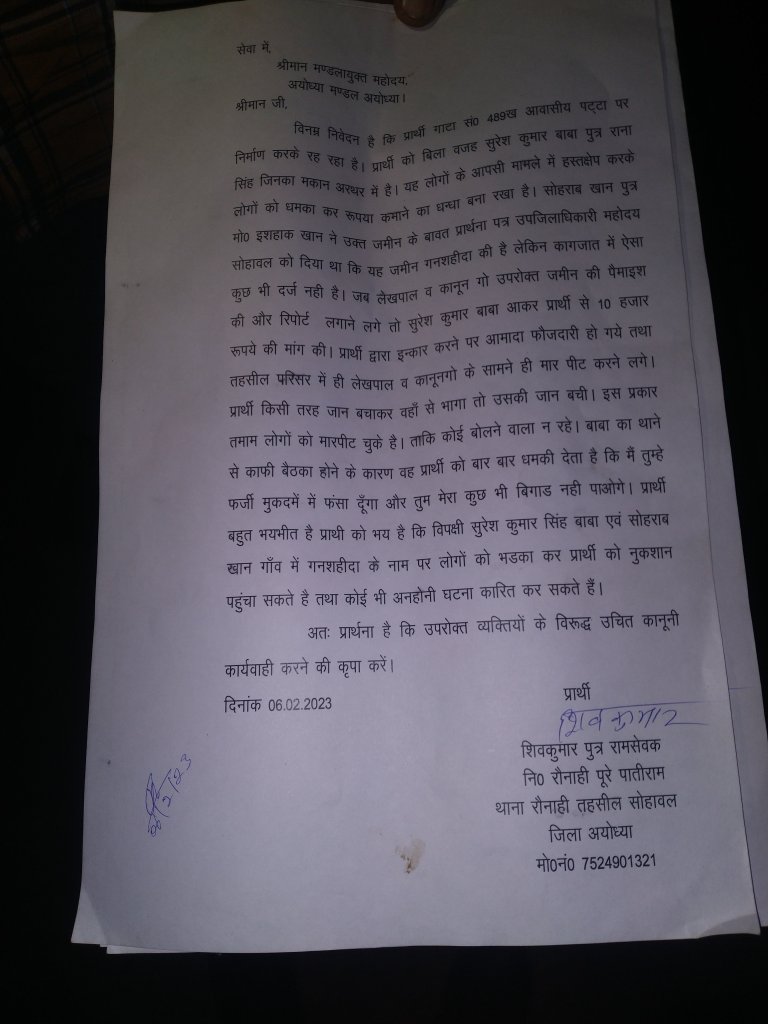 सेवा में,
श्रीमान मण्डलायुक्त महोदय,
अयोध्या मण्डल अयोध्या।
श्रीमान जी,
विनम्र निवेदन है कि प्रार्थी गाटा सं0 489ख आवासीय पट्टा पर
निर्माण करके रह रहा है। प्रार्थी को बिला वजह सुरेश कुमार बाबा पुत्र राना
सिंह जिनका मकान अरथर में है। यह लोगों के आपसी मामले में हस्तक्षेप करके
लोगों को धमका कर रूपया कमाने का धन्धा बना रखा है। सोहराब खान पुत्र
मो0 इशहाक खान ने उक्त जमीन के बावत प्रार्थना पत्र उपजिलाधिकारी महोदय
सोहावल को दिया था कि यह जमीन गनशहीदा की है लेकिन कागजात में ऐसा
कुछ भी दर्ज नही है। जब लेखपाल व कानून गो उपरोक्त जमीन की पैमाइश
की और रिपोर्ट लगाने लगे तो सुरेश कुमार बाबा आकर प्रार्थी से 10 हजार
रूपये की मांग की। प्रार्थी द्वारा इन्कार करने पर आमादा फौजदारी हो गये तथा
तहसील परिसर में ही लेखपाल व कानूनगो के सामने ही मार पीट करने लगे।
प्रार्थी किसी तरह जान बचाकर वहाँ से भागा तो उसकी जान बची। इस प्रकार
तमाम लोगों को मारपीट चुके है। ताकि कोई बोलने वाला न रहे। बाबा का थाने
से काफी बैठका होने के कारण वह प्रार्थी को बार बार धमकी देता है कि मैं तुम्हे
फर्जी मुकदमें में फंसा दूँगा और तुम मेरा कुछ भी बिगाड नही पाओगे। प्रार्थी
बहुत भयभीत है प्राथी को भय है कि विपक्षी सुरेश कुमार सिंह बाबा एवं सोहराब
खान गाँव में गनशहीदा के नाम पर लोगों को भडका कर प्रार्थी को नुकशान
पहुंचा सकते है तथा कोई भी अनहोनी घटना कारित कर सकते हैं।
अतः प्रार्थना है कि उपरोक्त व्यक्तियों के विरूद्ध उचित कानूनी
कार्यवाही करने की कृपा करें।
दिनांक 06.02.2023
प्रार्थी
शिवकुमार
शिवकुमार पुत्र रामसेवक
नि0 रौनाही पूरे पातीराम
थाना रौनाही तहसील सोहावल
जिला अयोध्या
मो0नं0 7524901321